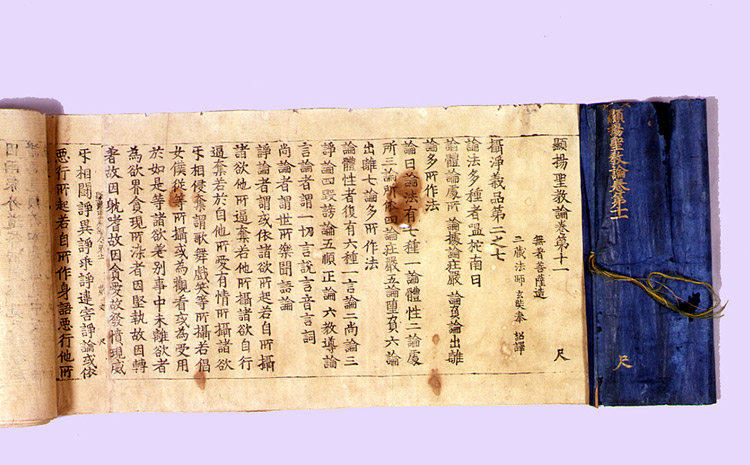 顯揚聖教論卷第十一
尺
顯揚聖教論卷第十一 尺
無著菩薩造
三藏法師玄奘奉 詔譯
攝淨義品第二之七
論法多種者嗢柁南曰
論體論處所 論據論莊嚴 論負論出離
論多所作法
論曰論法有七種一論體性二論處
所三論所依四論莊嚴五論墮負六論
出離七論多所作法
論體性者復有六種一言論二尚論三
諍論四毀謗論五順正論六教導論
言論者謂一切言說言音言詞
尚論者謂世所樂聞語論
諍論者謂或依諸欲所起若自所攝
諸欲他所逼奪若他所攝諸欲自行
逼奪若於自他所愛有情所攝諸欲
㸦相侵奪謂歌舞戲笑等所攝若倡
女僕從等所攝或為觀看或為受用
於如是等諸欲差別事中未離欲者
為欲界貪現所染者因堅執故因轉
著故因躭著故因貪愛故發憤現威
㸦相鬪諍異諍乖諍違害諍論或依
惡行所起若自所作身語惡行他所